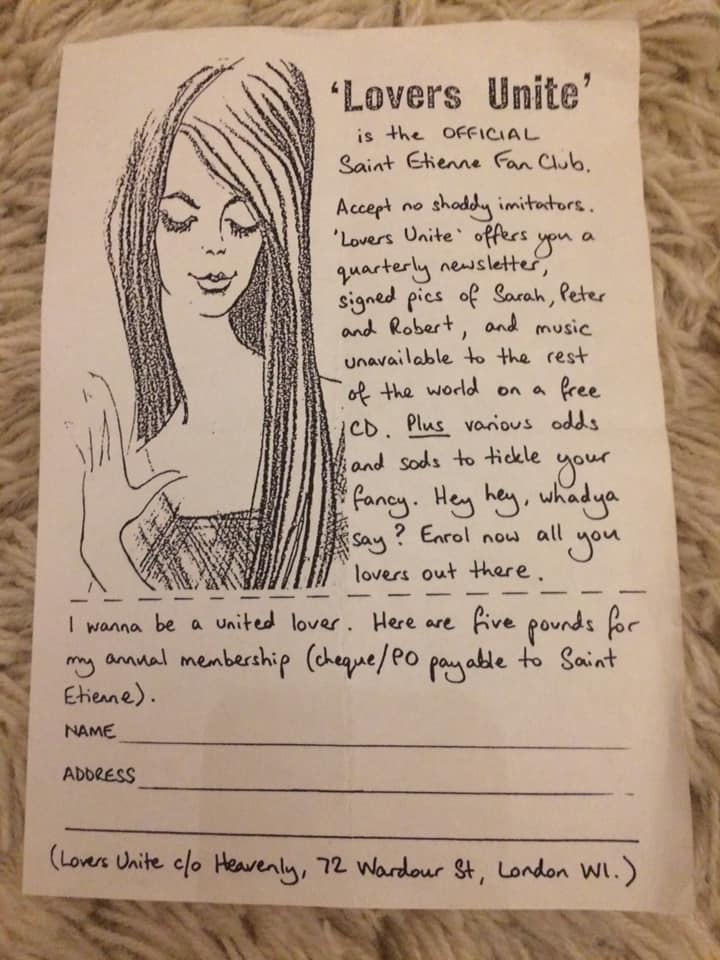 'Lovers Unite'
is the OFFICIAL
Saint Etienne Fan Club.
Accept no shoddy imitators.
'Lovers Unite' offers you a
quarterly newsletter,
signed pics of Sarah, Peter
and Robert, and music
unavailable to the rest
of the world on a free
CD. Plus various odds
and sods to tickle your
fancy. Hey hey, whadya
say? Enrol now all you
lovers out there.
I wanna be a united lover. Here are five pounds for
my annual membership (cheque/PO payable to Saint
Etienne).
NAME
ADDRESS
(Lovers Unite c/o Heavenly, 72 Wardour St, London W1.)